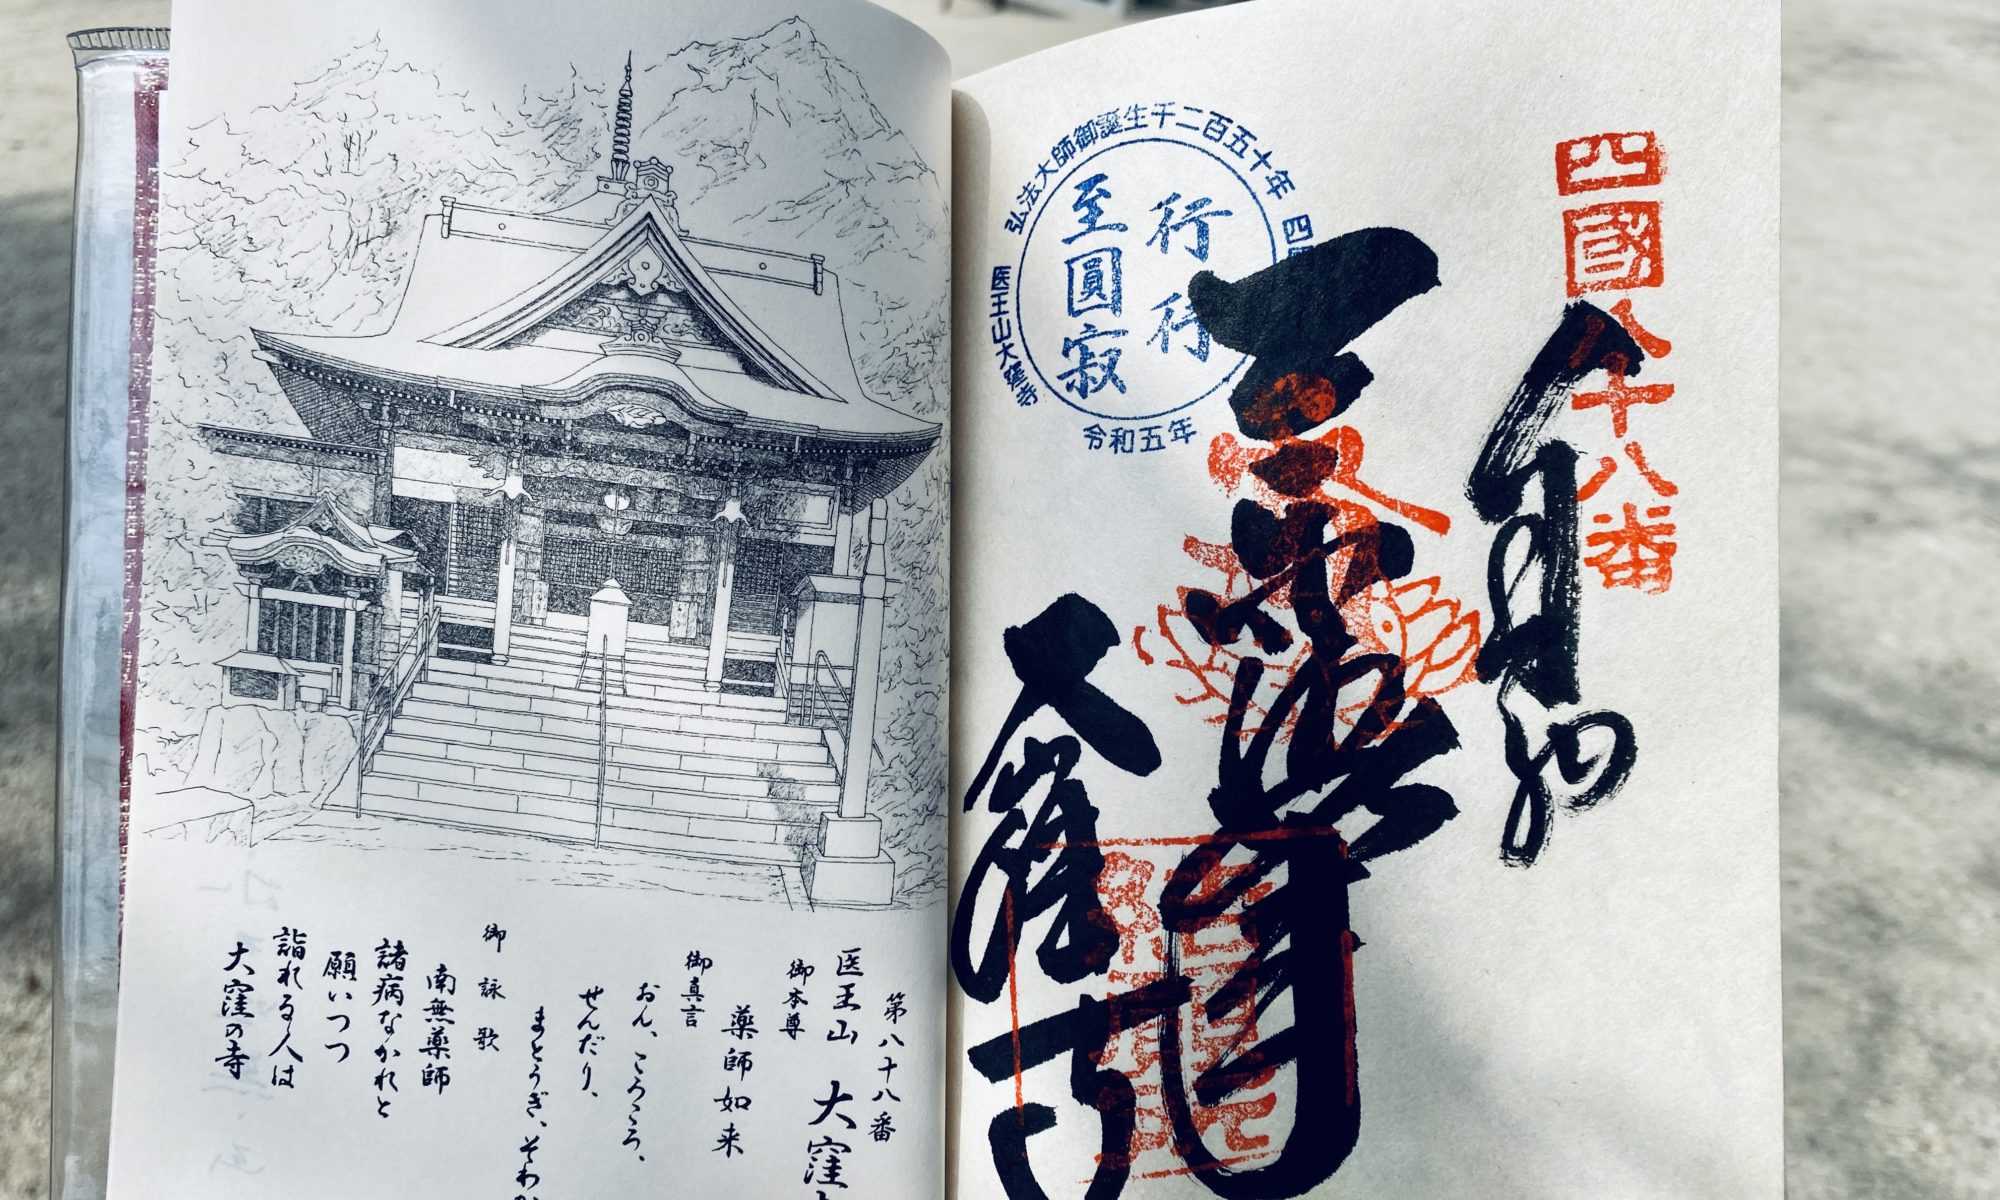 四國八十八番
奉拝
弘法大師御誕生千二百五十年
行行
至圓寂
医王山大窪寺
令和五年
大窪寺
第八十八番
医王山 大窪
御本尊
薬師如来
御真言
おん、ころころ、
せんだり、
まとうぎ、そわか
御詠歌
南無薬師
諸病なかれと
願いつつ
詣れる人は
大窪の寺